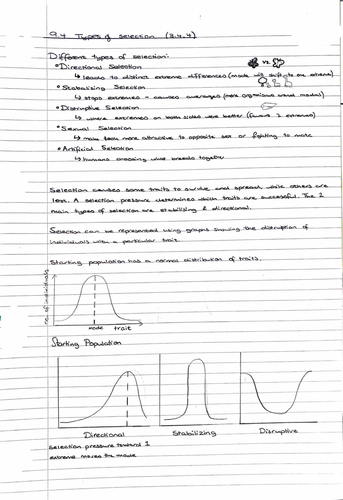 9.4 Types of selection (3.4.4)
Different types of selection:
• Directional Selection vs.
↳ leads to distinct extreme differences (mode will shift to one extreme)
• Stabalizing Selection
↳ stops extremes - causes averages (more organisms around modes)
• Disruptive Selection
↳ where extremes on both sides were better (favours 2 extremes)
• Sexual Selection
↳ make them more attractive to opposite sex or fighting to mate
• Artificial Selection
↳ humans choosing what breeds together
Selection causes some traits to survive and spread while others are
less. A selection pressure determines which traits are successful. The 2
main types of selection are stabilizing & directional.
Selection can be represented using graphs showing the disruption of
individuals with a particular trait.
Starting population has a normal distribution of traits.
no. of individuals
mode trait
Starting Population
Directional Stabilizing Disruptive
Selection pressure toward 1
extreme moves the mode